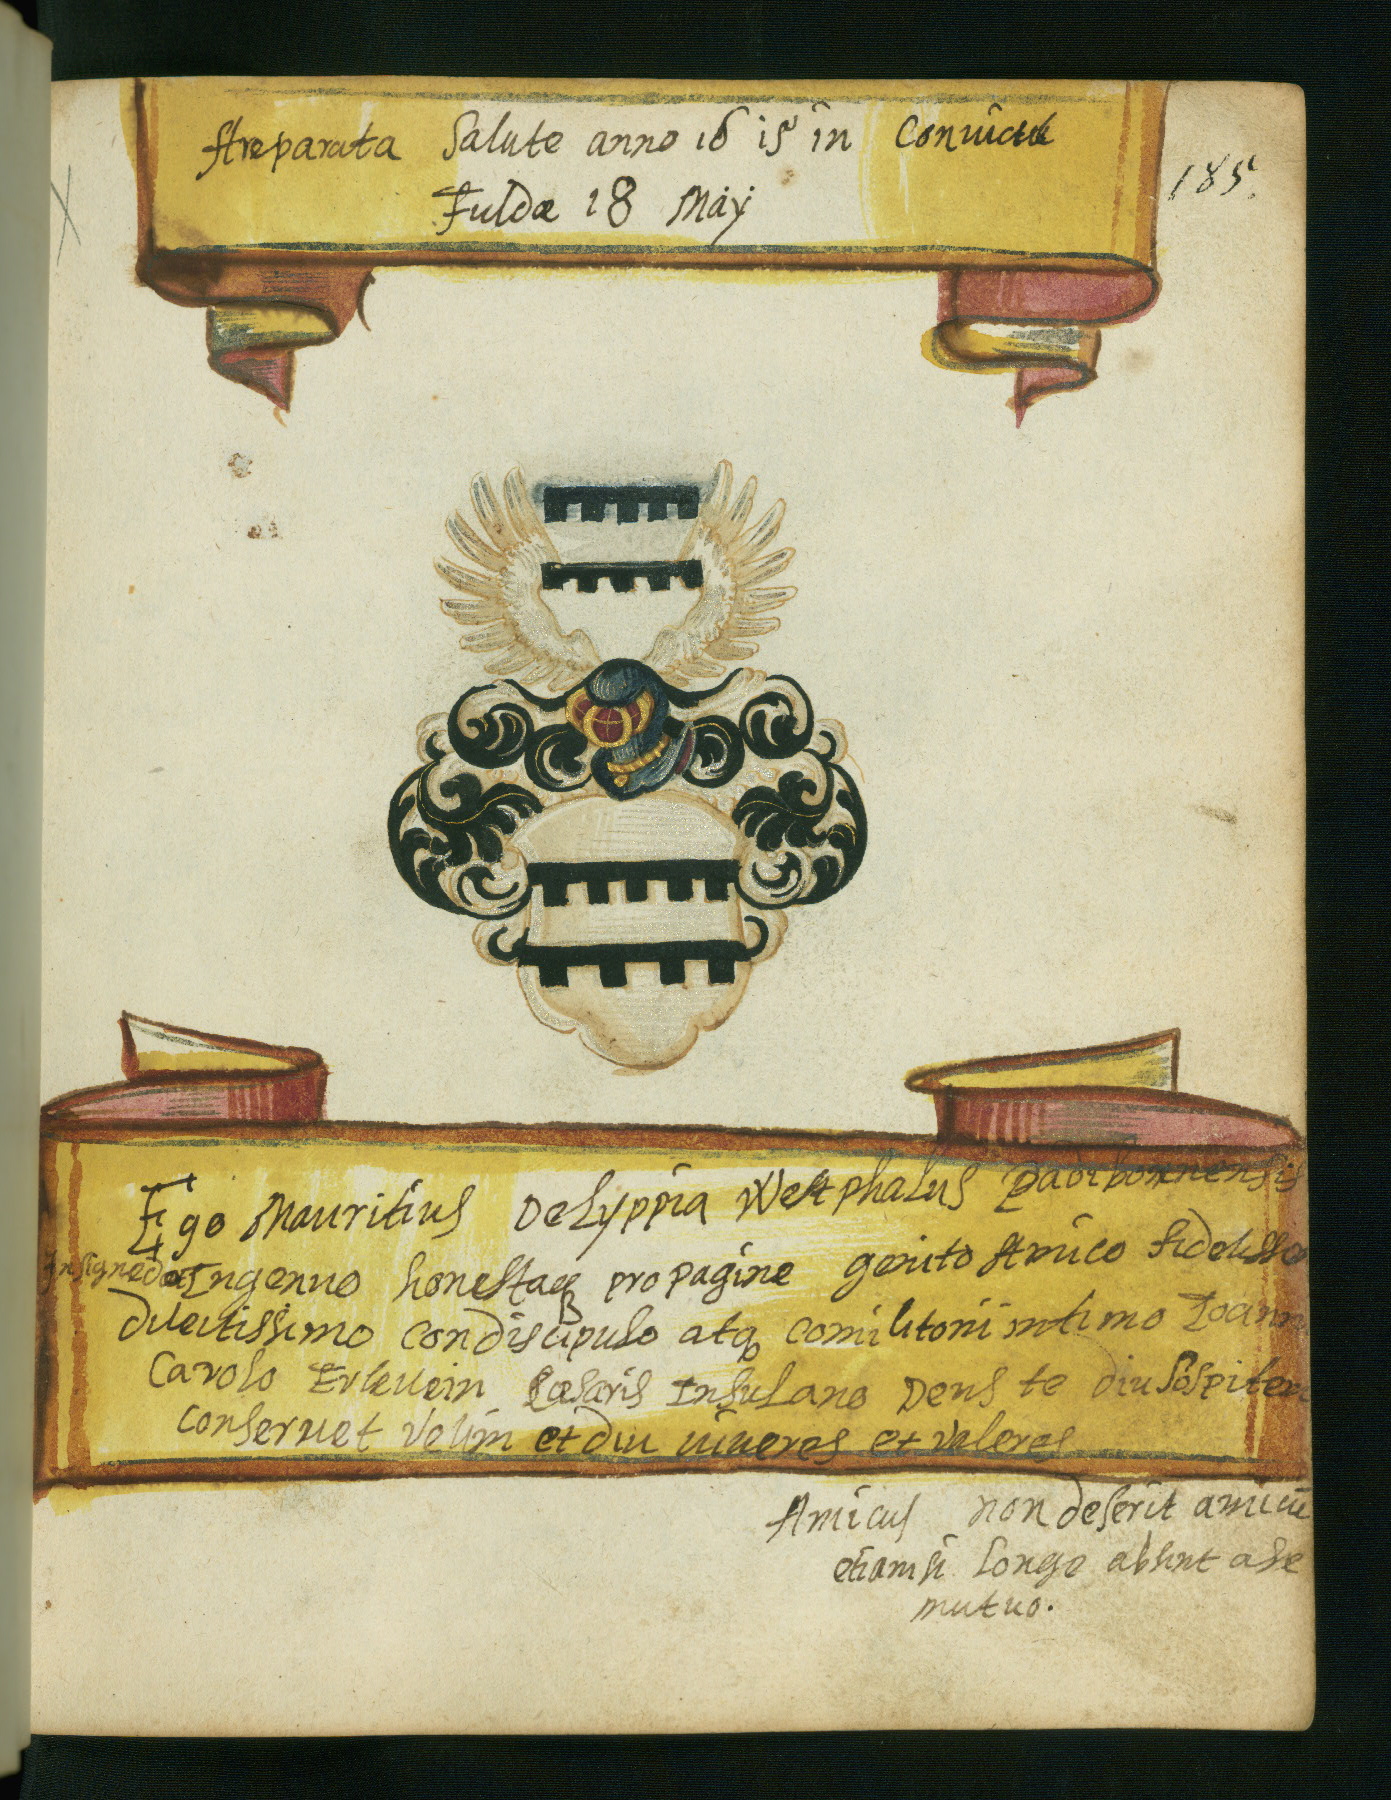 A reparata Salute anno 16 15 in Convictu
Fuldæ 18 Maÿ
185.
Ego Mauritius De Lyppia Westphalus Padibornnensis
Insigne do Ingenuo honestaq propagine genito Amico fideliss
dilectissimo condiscipulo atq comilitoni intimo Ioann
Carolo Erleuein Cæsaris Insulano Deus te diu Sospitem
conseruet Velim et diu uiueres et valeres
Amicus non deserit amicū
etiamsi longe absint a se
mutuo.